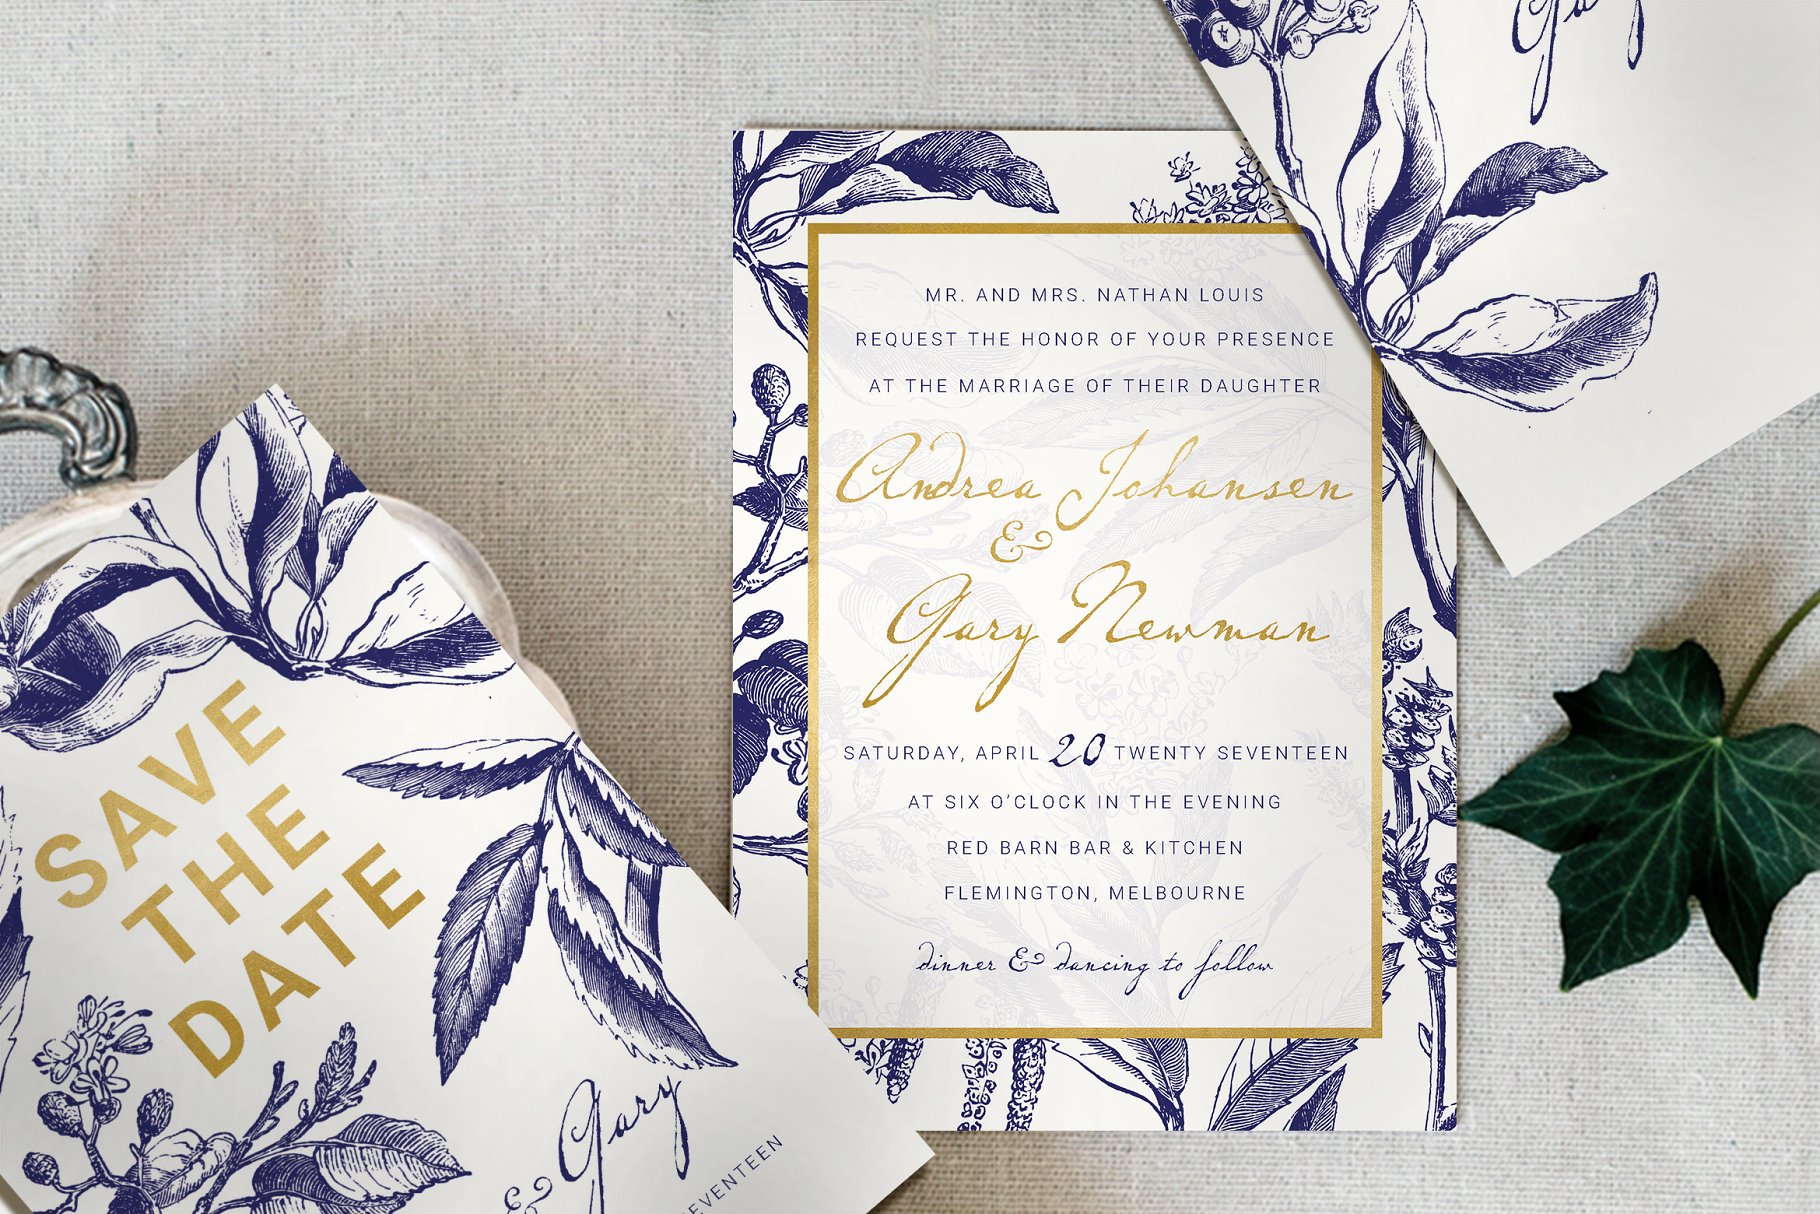 MR. AND MRS. NATHAN LOUIS
REQUEST THE HONOR OF YOUR PRESENCE
AT THE MARRIAGE OF THEIR DAUGHTER
Andrea Johansen
&
Gary Newman
SATURDAY, APRIL 20 TWENTY SEVENTEEN
AT SIX O'CLOCK IN THE EVENING
RED BARN BAR & KITCHEN
FLEMINGTON, MELBOURNE
dinner & dancing to follow
SAVE
THE
DATE
& Gary
EVENTEEN